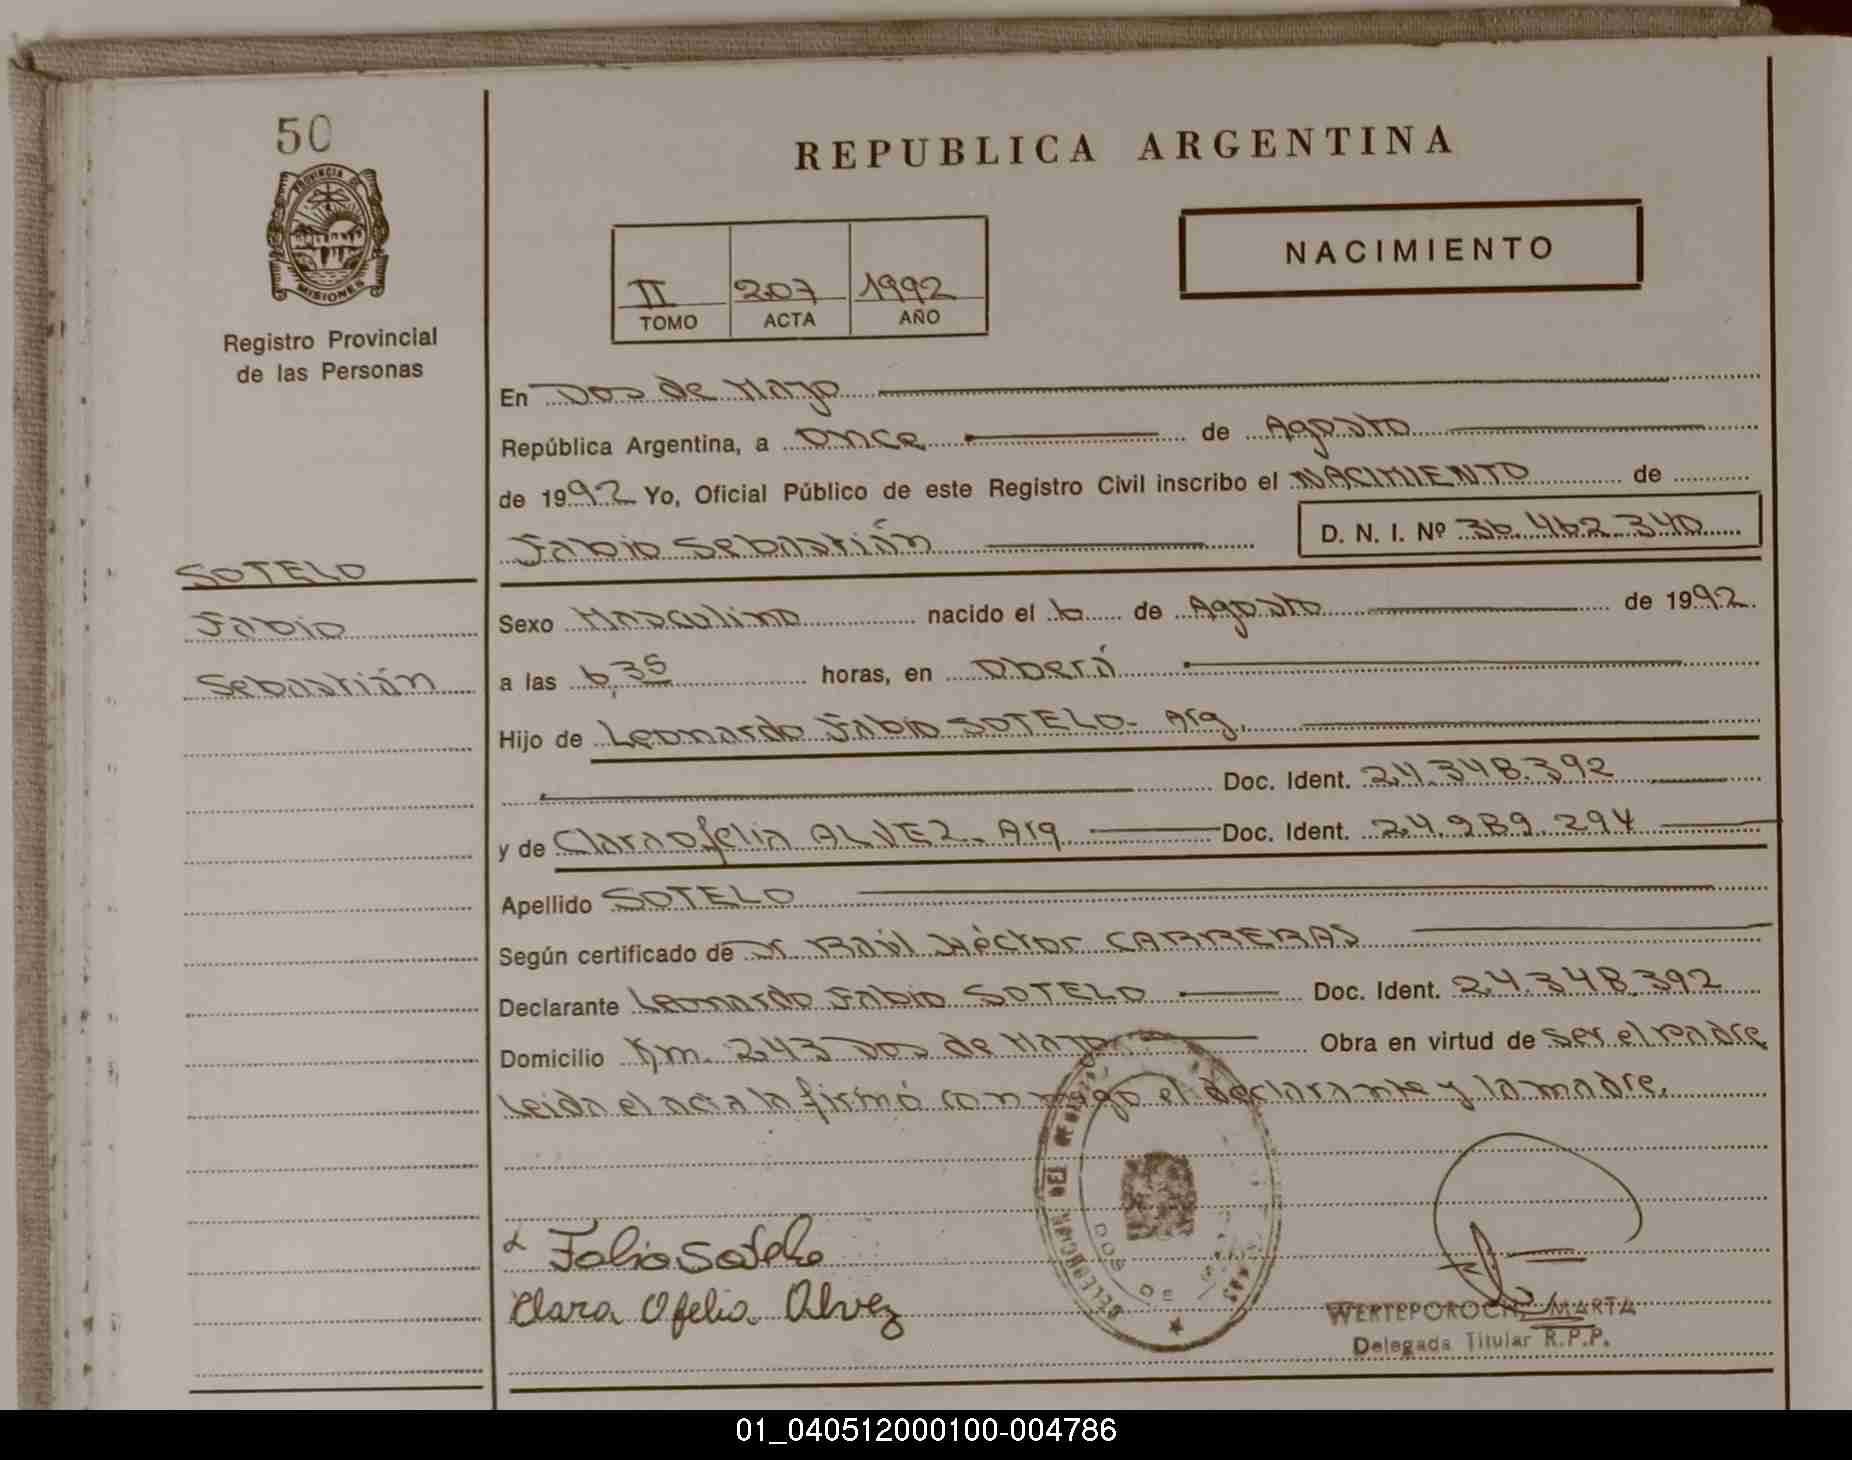 50
PROVINCIA DE
MISIONES
Registro Provincial
de las Personas
REPUBLICA ARGENTINA
NACIMIENTO
II 207 1992
TOMO ACTA AÑO
En Dos de Mayo
República Argentina, a once de Agosto
de 1992 Yo, Oficial Público de este Registro Civil inscribo el NACIMIENTO de
Fabio Sebastián D. N. I. Nº 36.462.340
SOTELO
Fabio
Sebastián
Sexo Masculino nacido el 6 de Agosto de 1992.
a las 6,35 horas, en Oberá
Hijo de Leonardo Fabio SOTELO- Arg.
Doc. Ident. 24.348.392
y de Clara Ofelia ALVEZ. Arg Doc. Ident. 24.989.294
Apellido SOTELO
Según certificado de Dr Raúl Héctor CARRERAS
Declarante Leonardo Fabio SOTELO Doc. Ident. 24.348.392
Domicilio Km. 243 Dos de Mayo Obra en virtud de ser el Padre
Leida el acta la firmó conmigo el declarante y la madre.
Fabio Sotelo
Clara Ofelia Alvez
DELEGACION DEL
DOS DE
WERTEPOROCH, MARTA
Delegada Titular R.P.P.
01_040512000100-004786